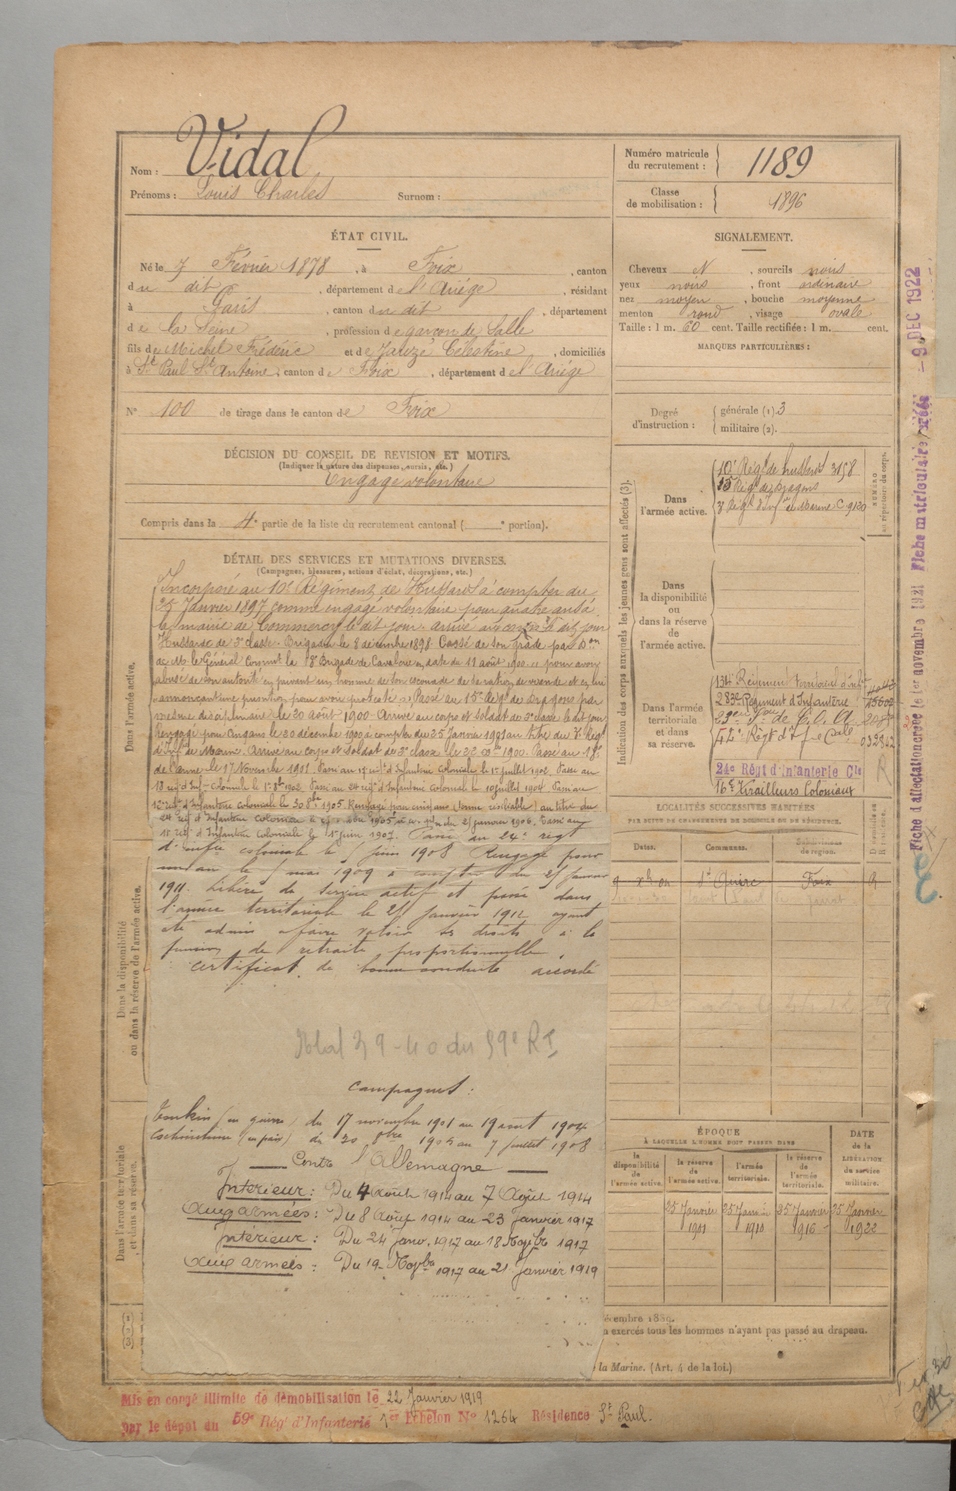 Nom : Vidal
Prénoms : Louis Charles Surnom :
Numéro matricule du recrutement : 1189
Classe de mobilisation : 1896
ÉTAT CIVIL.
Né le 7 Février 1878, à Foix, canton
du dit, département de l'Ariège, résidant
à Paris, canton du dit, département
de la Seine, profession de garçon de salle
fils de Michel Frédéric et de Célestine, domiciliés
à St Paul St Antoine, canton de Foix, département de l'Ariège
N° 100 de tirage dans le canton de Foix
SIGNALEMENT.
Cheveux N, sourcils noirs
yeux noirs, front ordinaire
nez moyen, bouche moyenne
menton rond, visage ovale
Taille : 1 m. 60 cent. Taille rectifiée : 1 m. cent.
MARQUES PARTICULIÈRES :
Degré d'instruction : générale (1). 3
militaire (2).
DÉCISION DU CONSEIL DE REVISION ET MOTIFS.
(Indiquer la nature des dispenses, sursis, etc.)
Engagé volontaire
Compris dans la 4e partie de la liste du recrutement cantonal ( e portion).
DÉTAIL DES SERVICES ET MUTATIONS DIVERSES.
(Campagnes, blessures, actions d'éclat, décorations, etc.)
Incorporé au 10e Régiment de Hussards à compter du
25 Janvier 1897 comme engagé volontaire pour quatre ans à
la mairie de Commercy le dit jour. Arrivé au corps le dit jour
Hussard de 2e classe. Brigadier le 8 décembre 1898. Cassé de son grade par
le Général Commt la Brigade de Cavalerie en date du 11 août 1900 pour avoir
abusé de son autorité en privant un homme de son escouade de sa ration de viande et en lui
Passé au 15e Régt de Dragons par
mesure disciplinaire le 30 août 1900. Arrivé au corps et soldat de 2e classe le dit jour
Rengagé pour cinq ans le 20 décembre 1900 à compter du 25 Janvier 1901 au titre du 7e Régt
d'Infie de Marine. Arrivé au corps et soldat de 2e classe le 1900. Passé au 18e
de l'arme le 17 Novembre 1901. Passé au d'Infanterie Coloniale le 1er juillet 1902. Passé au
Coloniale le 1903. Passé au 24 regt d'Infanterie Coloniale le 10 juillet 1904. Passé au
d'Infanterie Coloniale le 30 1905. Rengagé pour cinq ans au titre du
d'Infanterie Coloniale 1905 25 janvier 1906. Passé au
d'Infanterie Coloniale le 1er juin 1907. Passé au 24e regt
d'infie coloniale le juin 1908 Rengagé pour
un an le mai 1909 à compter du 25 janvier
1911. Libéré de service actif et passé dans
l'armée territoriale le 25 janvier 1912 ayant
été admis à faire valoir ses droits à la
pension de retraite proportionnelle.
certificat de bonne conduite accordé
39-40 du 59e RI
Campagnes :
Tonkin (en guerre) du 17 novembre 1901 au 19 août 1904
Cochinchine (en paix) du 30 8bre 1905 au 7 juillet 1908
Contre l'Allemagne
Intérieur : Du 4 août 1914 au 7 Août 1914
aux armées : Du 8 Août 1914 au 23 Janvier 1917
Intérieur : Du 24 janv. 1917 au 18 Novbre 1917
aux armées : Du 19 Novbre 1917 au 21 Janvier 1919
Dans l'armée active.
Dans la disponibilité ou dans la réserve de l'armée active.
Dans l'armée territoriale et dans sa réserve.
Indication des corps auxquels les jeunes gens sont affectés (3).
NUMÉRO au répertoire du corps.
Dans l'armée active.
10e Régt de hussards 3158
15 Régt de Dragons
7e Régt d'Infie de Marine C 9120
Dans la disponibilité ou dans la réserve de l'armée active.
Dans l'armée territoriale et dans sa réserve.
134e Régiment territorial d'infie
283e Régiment d'Infanterie
23e
52e Régt d'Infie Cale 032962
24e Régt d'Infanterie Cle
16e Tirailleurs Coloniaux
LOCALITÉS SUCCESSIVES HABITÉES
PAR SUITE DE CHANGEMENTS DE DOMICILE OU DE RÉSIDENCE.
Dates. Communes. Subdivisions de région. D
St Quirc Foix R
ÉPOQUE
À LAQUELLE L'HOMME DOIT PASSER DANS
DATE de la LIBÉRATION du service militaire.
la disponibilité de l'armée active. la réserve de l'armée active. l'armée territoriale. la réserve de l'armée territoriale.
25 Janvier 1901 25 Janvier 1910 25 Janvier 1916 25 Janvier 1922
écembre 1889.
n exercés tous les hommes n'ayant pas passé au drapeau.
la Marine. (Art. 4 de la loi.)
Mis en congé illimité de démobilisation le 22 Janvier 1919
par le dépôt du 59e Rég' d'Infanterie 1er Echelon N° 1264 Résidence St Paul.
Fiche d'affectation créée le 1er novembre 1921 Fiche matriculaire créée - 9 DEC 1922